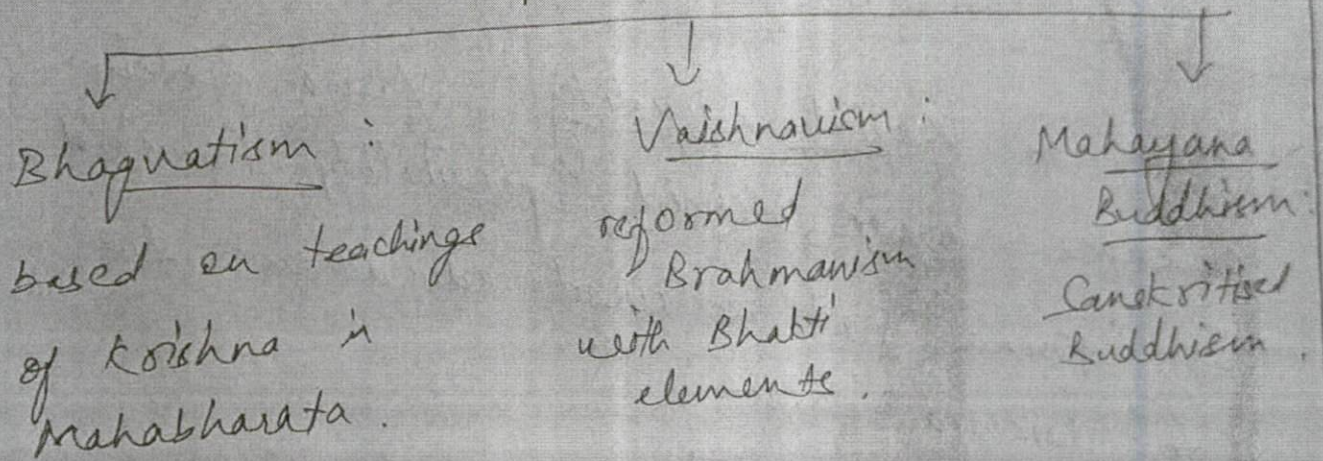 Bhagvatism :
based on teachings
of Krishna in
Mahabharata.
Vaishnavism :
reformed
Brahmanism
with Bhakti
elements.
Mahayana
Buddhism:
Sanskritised
Buddhism.